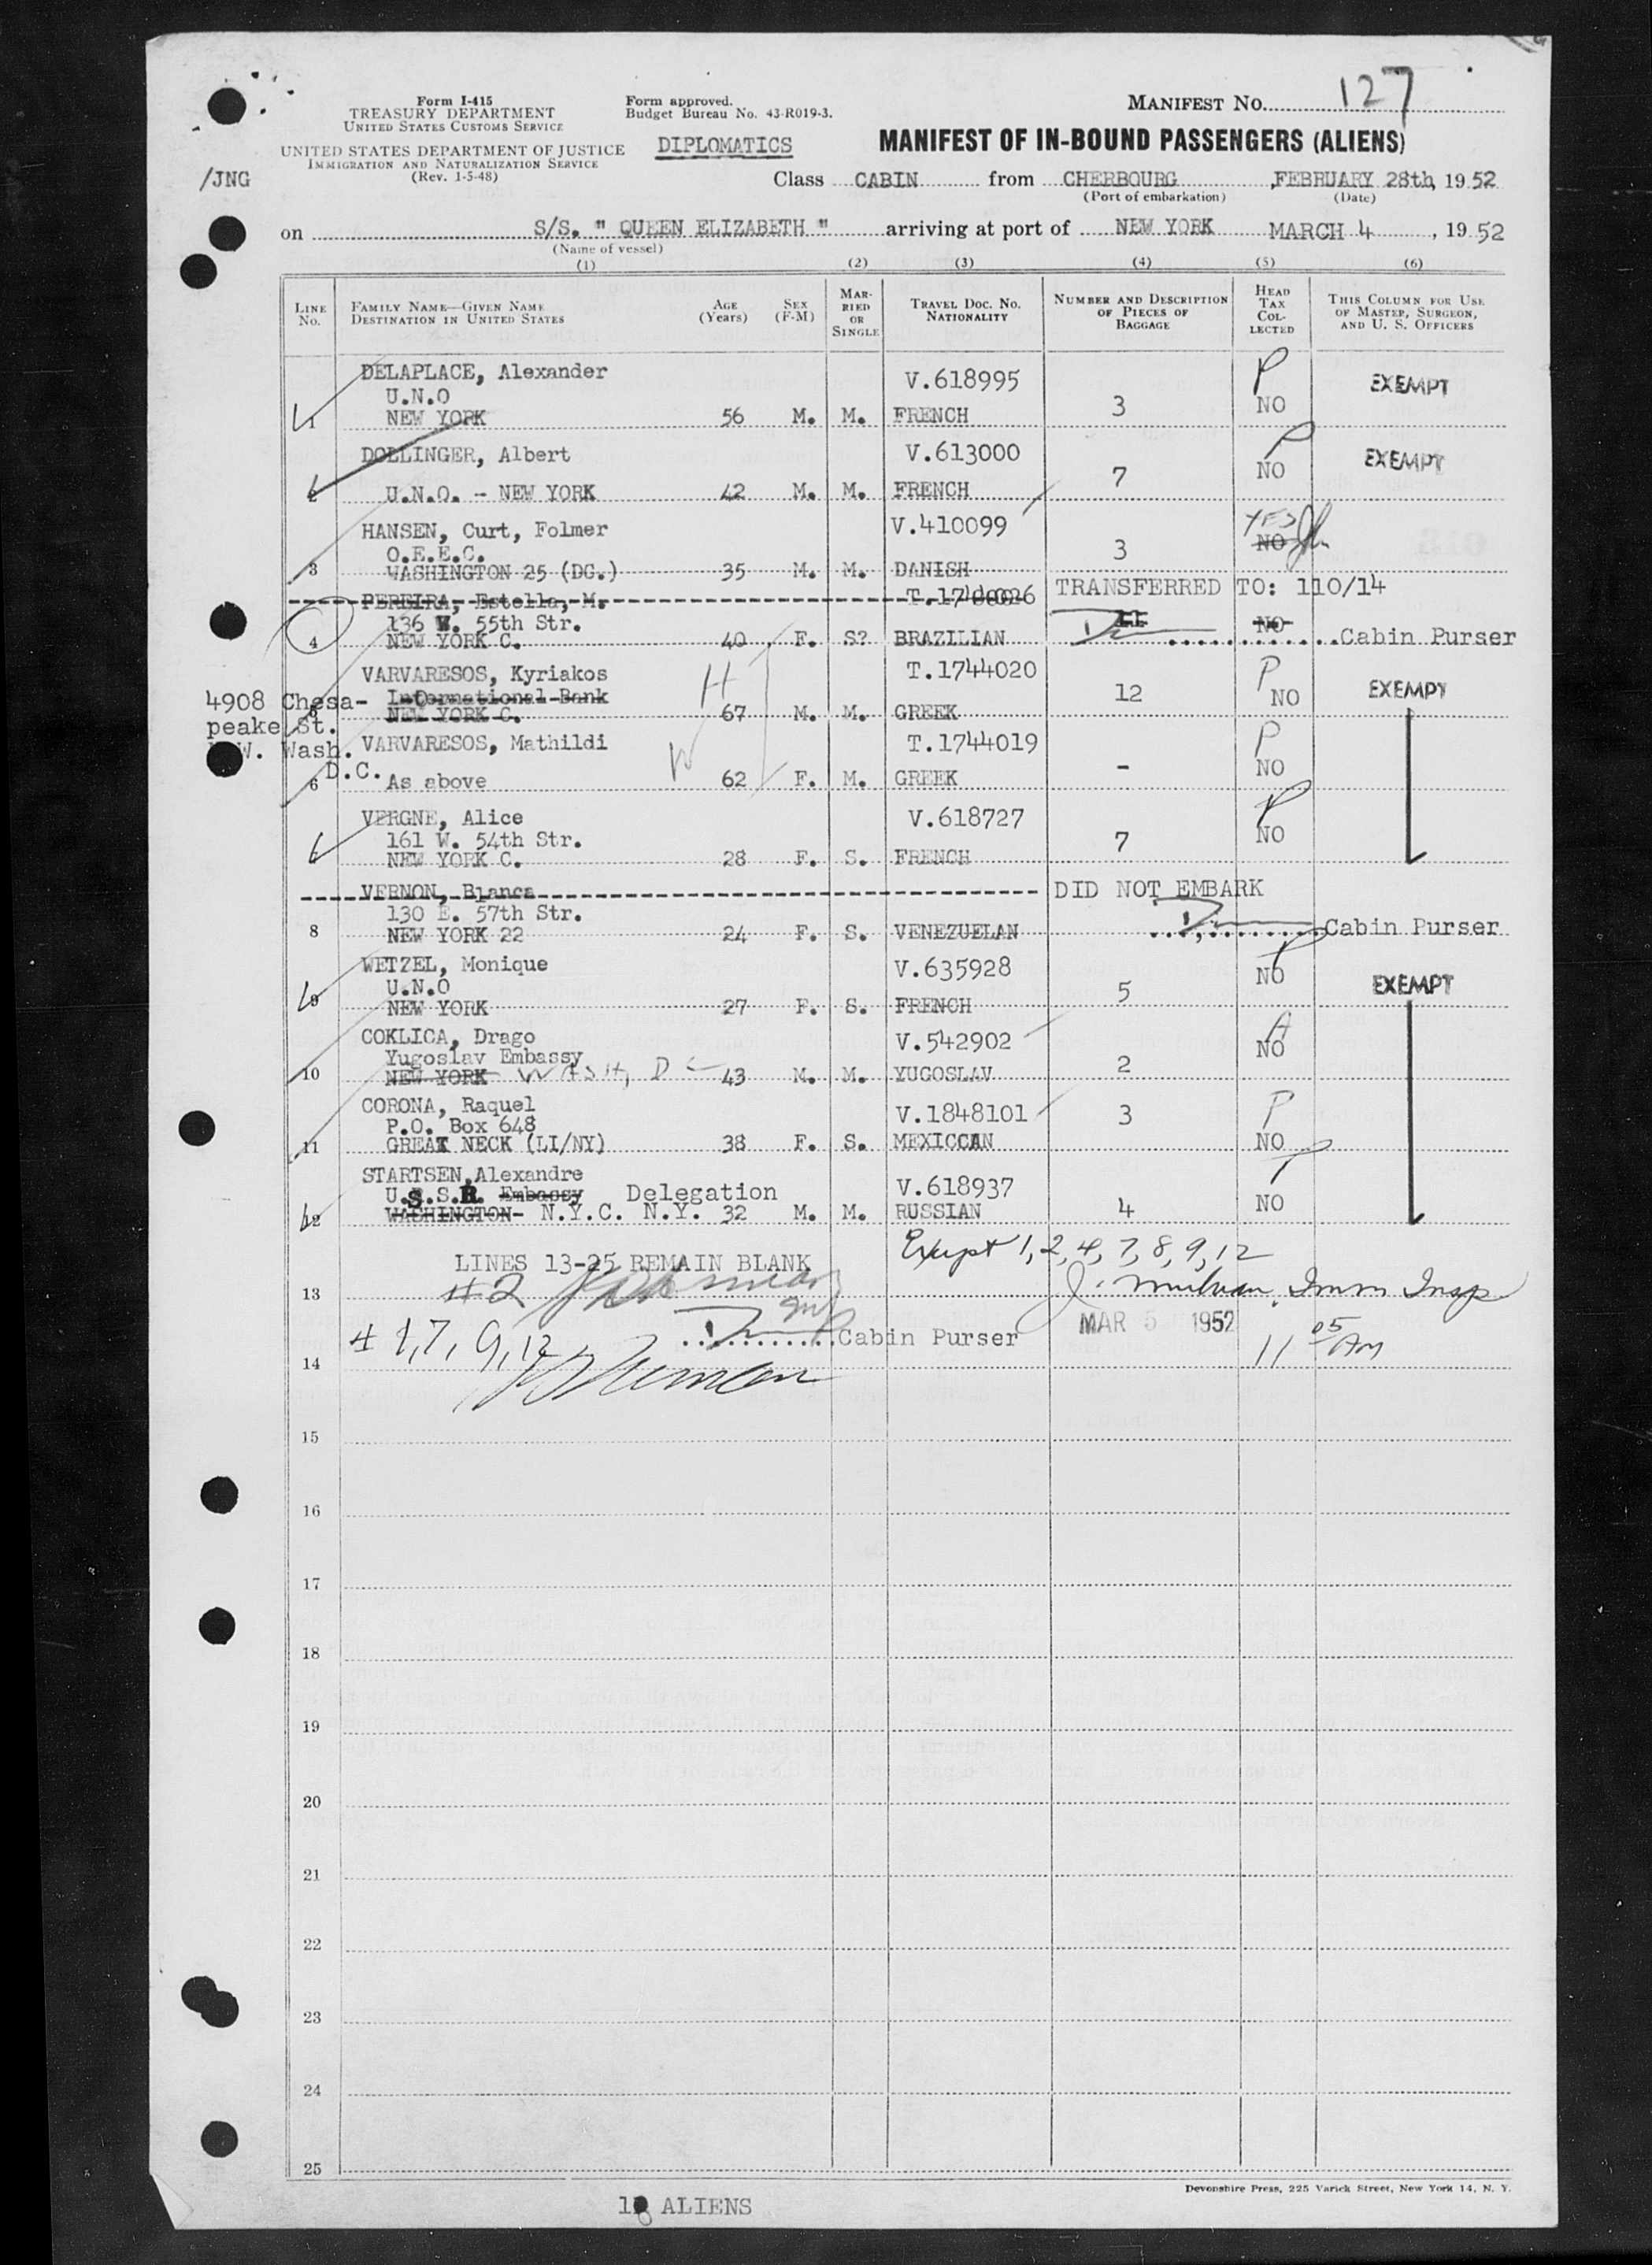 127
Form I-415
TREASURY DEPARTMENT
UNITED STATES CUSTOMS SERVICE
UNITED STATES DEPARTMENT OF JUSTICE
IMMIGRATION AND NATURALIZATION SERVICE
(Rev. 1-5-48)
Form approved.
Budget Bureau No. 43-R019-3.
DIPLOMATICS
MANIFEST NO.
MANIFEST OF IN-BOUND PASSENGERS (ALIENS)
/JNG
Class CABIN from CHERBOURG, FEBRUARY 28th, 1952
(Port of embarkation) (Date)
on S/S. " QUEEN ELIZABETH " arriving at port of NEW YORK MARCH 4, 1952
(Name of vessel)
(1) (2) (3) (4) (5) (6)
LINE NO. FAMILY NAME—GIVEN NAME DESTINATION IN UNITED STATES AGE (Years) SEX (F-M) MARRIED OR SINGLE TRAVEL DOC. NO. NATIONALITY NUMBER AND DESCRIPTION OF PIECES OF BAGGAGE HEAD TAX COLLECTED THIS COLUMN FOR USE OF MASTER, SURGEON, AND U. S. OFFICERS
DELAPLACE, Alexander V.618995 P EXEMPT
U.N.O 3 NO
1 NEW YORK 56 M. M. FRENCH
DOLLINGER, Albert V.613000 P EXEMPT
7 NO
2 U.N.O. - NEW YORK 42 M. M. FRENCH
HANSEN, Curt, Folmer V.410099 YES
O.E.E.C. 3 NO
3 WASHINGTON 25 (DC.) 35 M. M. DANISH
PEREIRA, Estella, M. TRANSFERRED TO: 110/14
136 W. 55th Str. 11 NO
4 NEW YORK C. 40 F. S? BRAZILIAN Cabin Purser
VARVARESOS, Kyriakos H T.1744020 P EXEMPT
4908 Chesa- International Bank 12 NO
5 NEW YORK C. 67 M. M. GREEK
peake St.
N.W. Wash. VARVARESOS, Mathildi W T.1744019 P
D.C. - NO
6 As above 62 F. M. GREEK
VERGNE, Alice V.618727 P
161 W. 54th Str. 7 NO
7 NEW YORK C. 28 F. S. FRENCH
VERNON, Blanca DID NOT EMBARK
130 E. 57th Str.
8 NEW YORK 22 24 F. S. VENEZUELAN Cabin Purser
WETZEL, Monique V.635928 P NO EXEMPT
U.N.O 5
9 NEW YORK 27 F. S. FRENCH
COKLICA, Drago V.542902 A NO
Yugoslav Embassy 2
10 NEW YORK WASH, DC 43 M. M. YUGOSLAV
CORONA, Raquel V.1848101 3 P
P.O. Box 648
11 GREAT NECK (LI/NY) 38 F. S. MEXICCAN NO
STARTSEN, Alexandre V.618937 P
U.S.S.R. Embassy Delegation 4 NO
12 WASHINGTON- N.Y.C. N.Y. 32 M. M. RUSSIAN
LINES 13-25 REMAIN BLANK Exempt 1, 2, 4, 7, 8, 9, 12
13 #2 Imm Insp
Cabin Purser MAR 5 1952 11 05 AM
14 # 1, 7, 9, 12
15
16
17
18
19
20
21
22
23
24
25
Devonshire Press, 225 Varick Street, New York 14, N. Y.
ALIENS